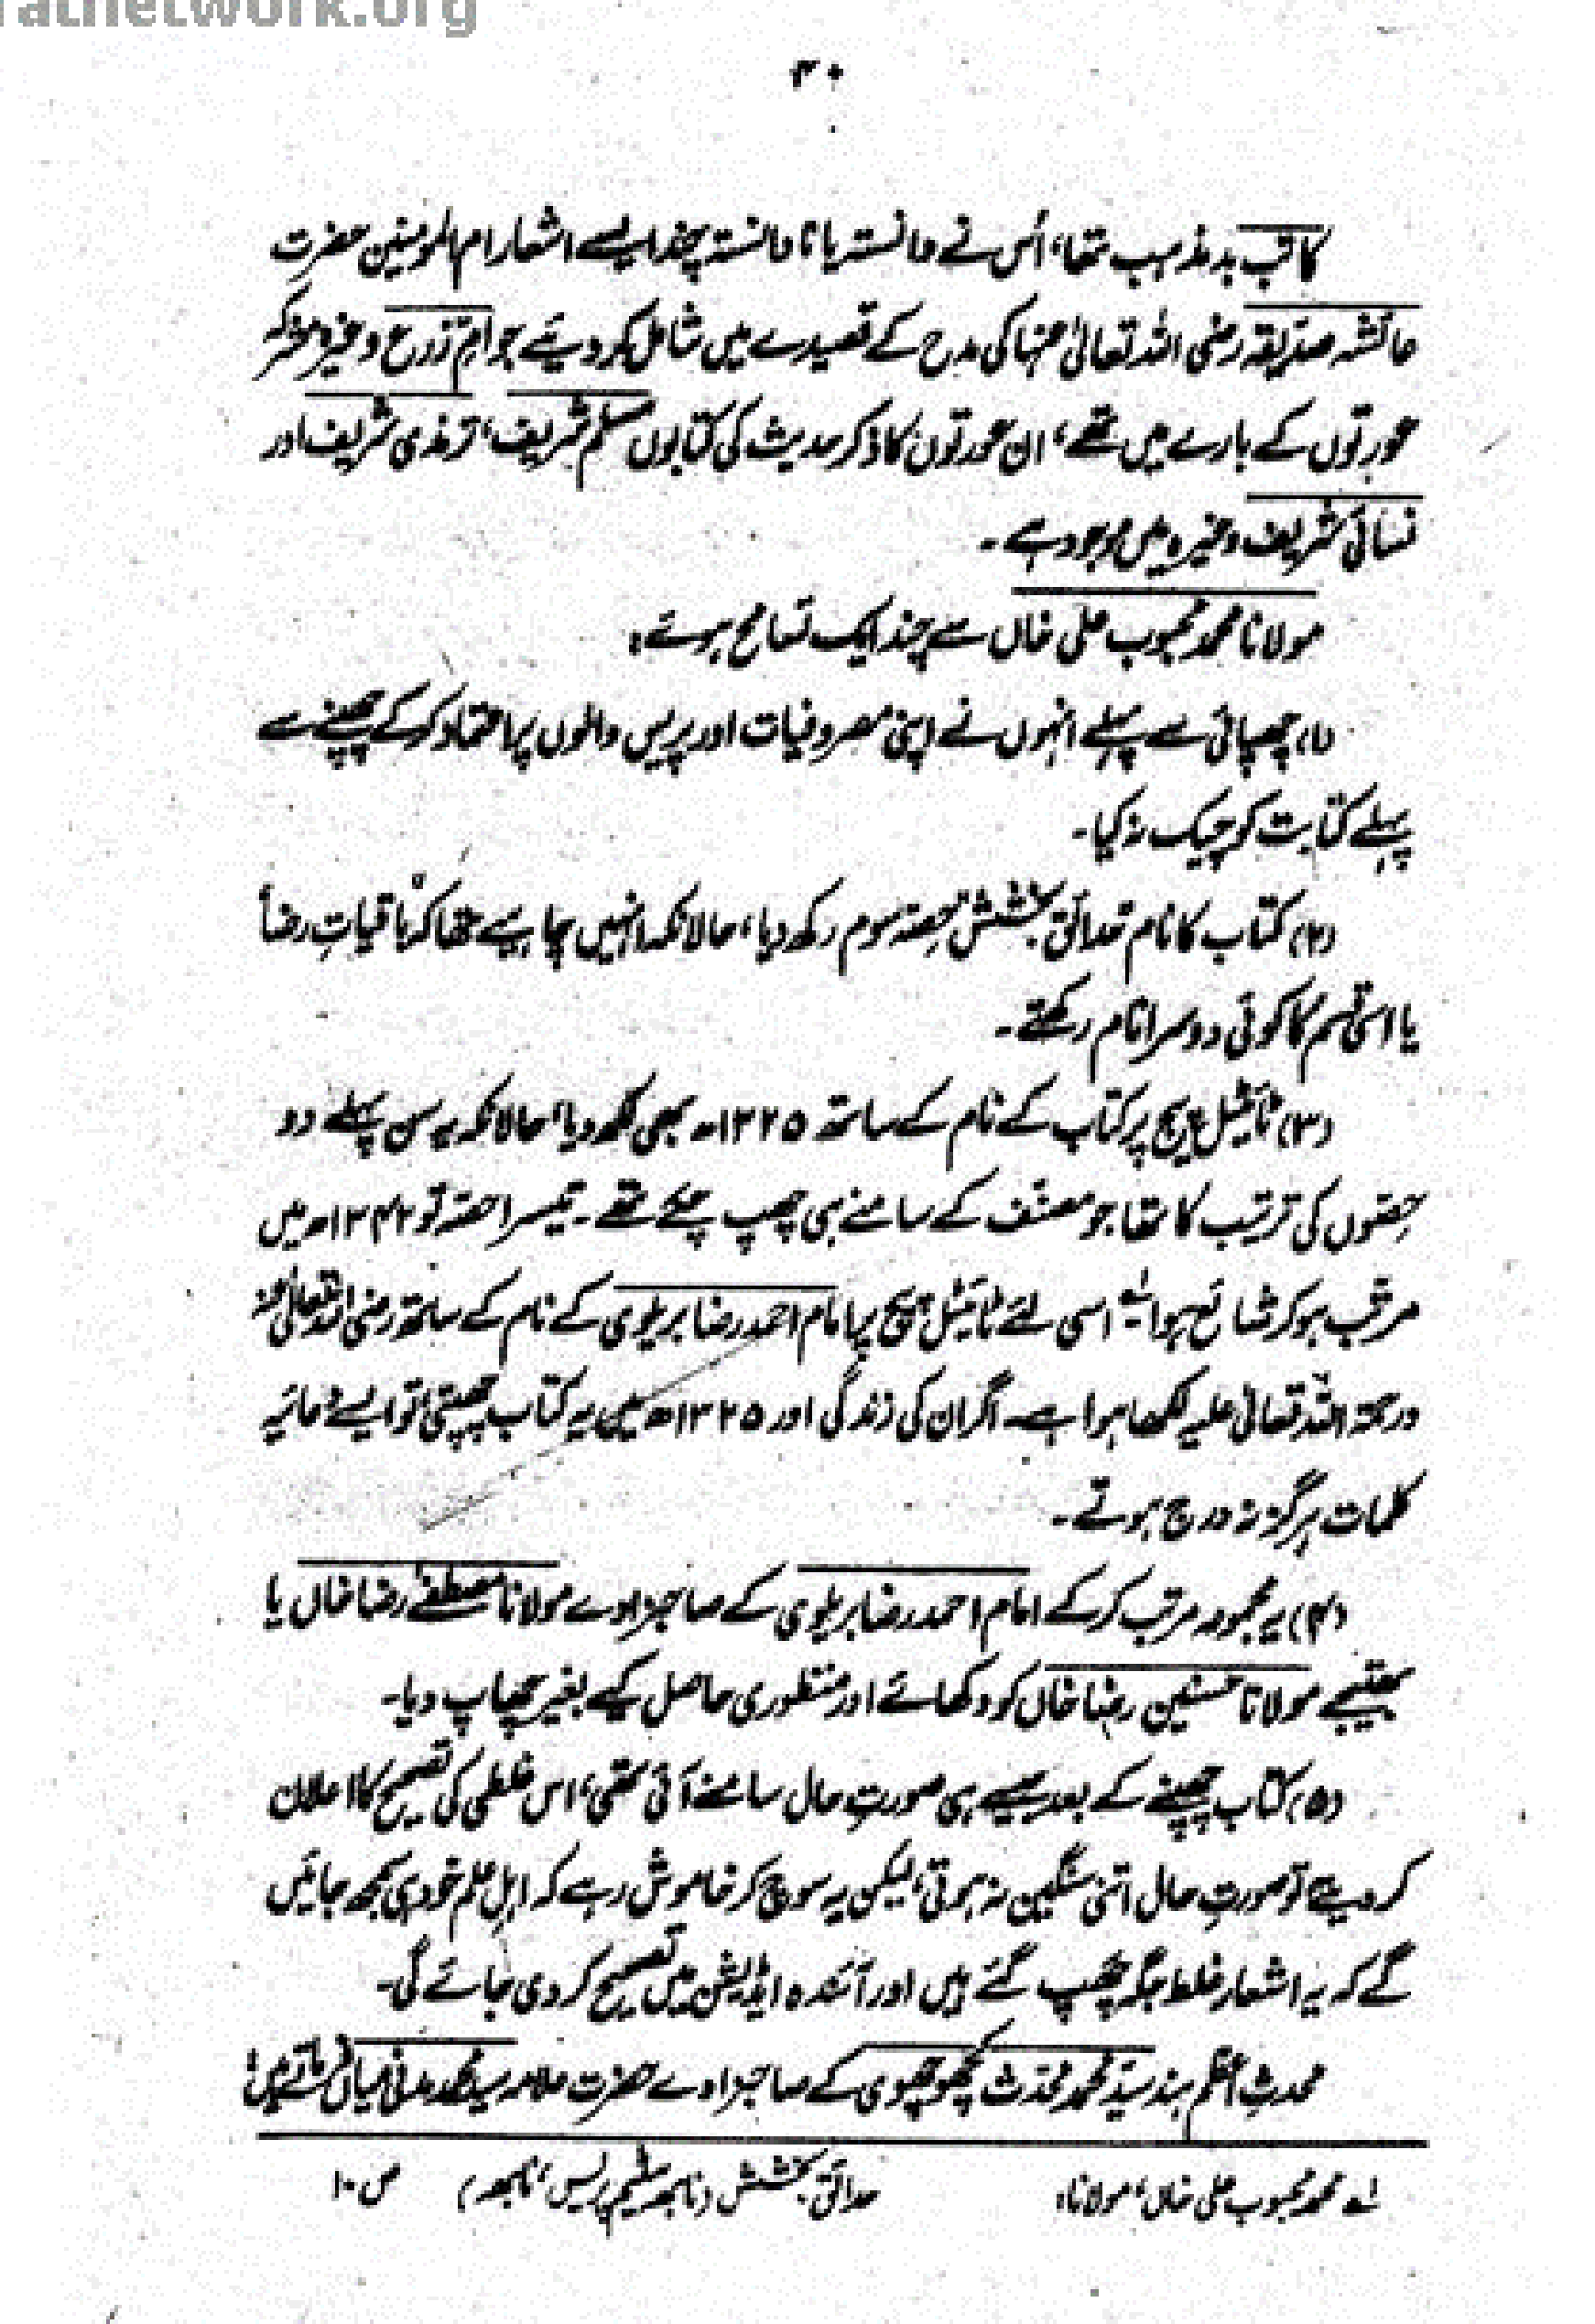 rathetwork.org
۳۰
کاتب بدمذہب تھا، اُس نے دانستہ یا نا دانستہ چند ایسے اشعار ام المومنین حضرت
عائشہ صدّیقہ رضی اللہ تعالیٰ عنہا کی مدح کے قصیدے میں شامل کر دیئے جو اُمِّ زرع وغیرہ مشرکہ
عورتوں کے بارے میں تھے، ان عورتوں کا ذکر حدیث کی کتابوں مسلم شریف، ترمذی شریف اور
نسائی شریف وغیرہ میں موجود ہے۔
مولانا محمد محبوب علی خاں سے چند ایک تسامح ہوئے:
(۱) چھپائی سے پہلے انہوں نے اپنی مصروفیات اور پریس والوں پر اعتماد کر کے چھپنے سے
پہلے کتابت کو چیک نہ کیا۔
(۲) کتاب کا نام حدائق بخشش حصہ سوم رکھ دیا، حالانکہ انہیں چاہیے تھا کہ باقیاتِ رضا
یا اسی قسم کا کوئی دوسرا نام رکھتے۔
(۳) ٹائیٹل پیج پر کتاب کے نام کے ساتھ ۱۳۲۵ھ بھی لکھ دیا، حالانکہ یہ سن پہلے دو
حصّوں کی ترتیب کا تھا جو مصنّف کے سامنے ہی چھپ چکے تھے۔ تیسرا حصّہ تو ۱۳۴۲ھ میں
مرتب ہو کر شائع ہوا لہ اسی لئے ٹائیٹل پیج پر امام احمد رضا بریلوی کے نام کے ساتھ رضی اللہ تعالیٰ عنہ
ورحمۃ اللہ تعالیٰ علیہ لکھا ہوا ہے۔ اگر ان کی زندگی اور ۱۳۲۵ھ میں یہ کتاب چھپتی تو ایسے دعائیہ
کلمات ہرگز نہ درج ہوتے۔
(۴) یہ مجموعہ مرتب کر کے امام احمد رضا بریلوی کے صاحبزادے مولانا مصطفےٰ رضا خاں یا
بھتیجے مولانا حسنین رضا خاں کو دکھائے اور منظوری حاصل کیے بغیر چھاپ دیا۔
(۵) کتاب چھپنے کے بعد جیسے ہی صورتِ حال سامنے آئی تھی، اس غلطی کی تصحیح کا اعلان
کر دیتے تو صورتِ حال اتنی سنگین نہ ہوتی، لیکن یہ سوچ کر خاموش رہے کہ اہلِ علم خود ہی سمجھ جائیں
گے کہ یہ اشعار غلط جگہ چھپ گئے ہیں اور آئندہ ایڈیشن میں تصحیح کر دی جائے گی۔
محدثِ اعظم ہند سیّد محمد محدّث کچھوچھوی کے صاحبزادے حضرت علامہ سید محمد مدنی میاں فرماتے ہیں:
لہ محمد محبوب علی خاں، مولانا: حدائق بخشش (نابھہ سٹیم پریس، نابھہ) ص ۱۰